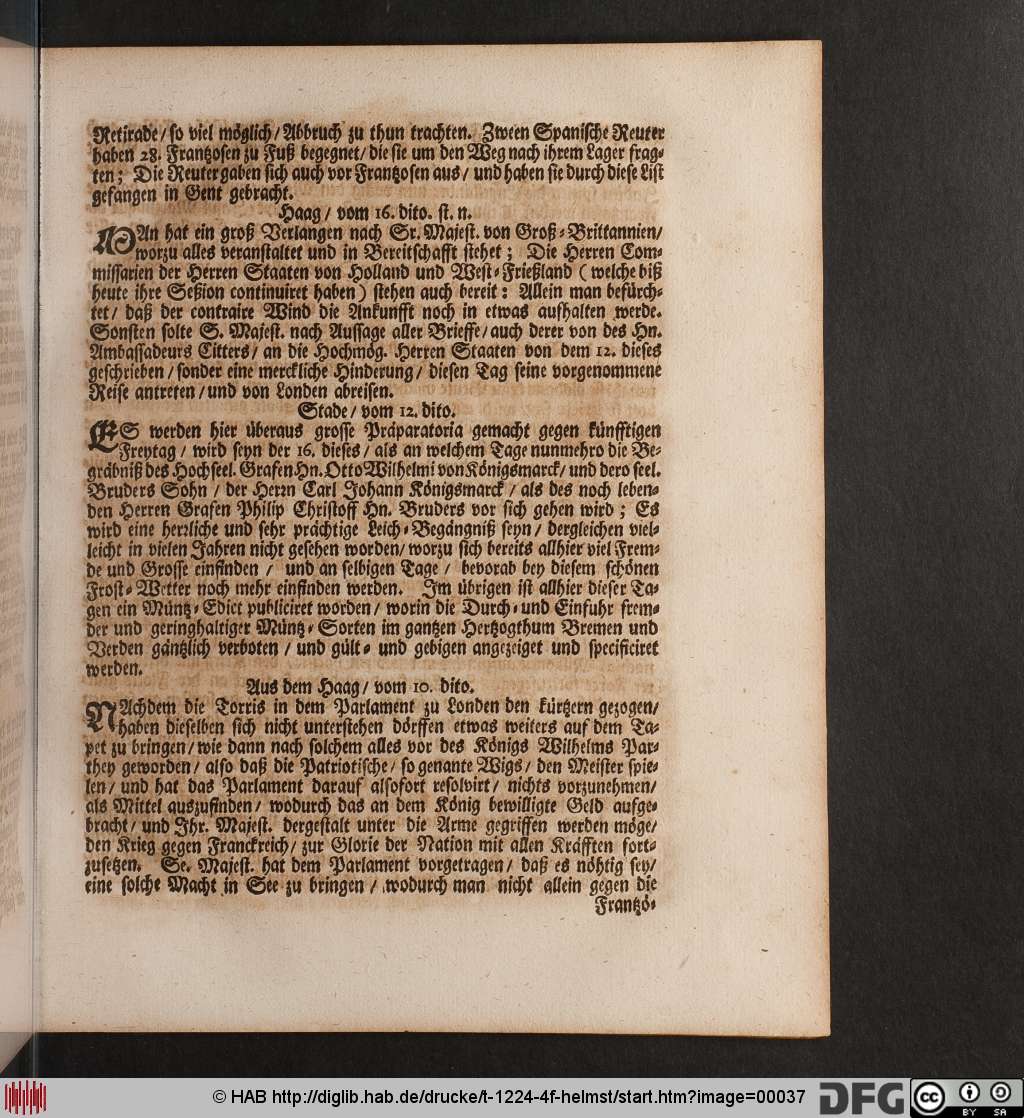 Retirade/ so viel möglich/ Abbruch zu thun trachten. Zween Spanische Reuter
haben 28. Frantzosen zu Fuß begegnet/ die sie um den Weg nach ihrem Lager frag-
ten; Die Reuter gaben sich auch vor Frantzosen aus/ und haben sie durch diese List
gefangen in Gent gebracht.
Haag/ vom 16. dito. st. n.
MAn hat ein groß Verlangen nach Sr. Majest. von Groß-Brittannien/
worzu alles veranstaltet und in Bereitschafft stehet; Die Herren Com-
missarien der Herren Staaten von Holland und West-Frießland (welche biß
heute ihre Seßion continuiret haben) stehen auch bereit: Allein man befürch-
tet/ daß der contraire Wind die Ankunfft noch in etwas aufhalten werde.
Sonsten solte S. Majest. nach Aussage aller Brieffe/ auch derer von des Hn.
Ambassadeurs Citters/ an die Hochmög. Herren Staaten von dem 12. dieses
geschrieben/ sonder eine merckliche Hinderung/ diesen Tag seine vorgenommene
Reise antreten/ und von Londen abreisen.
Stade/ vom 12. dito.
ES werden hier überaus grosse Präparatoria gemacht gegen künfftigen
Freytag/ wird seyn der 16. dieses/ als an welchem Tage nunmehro die Be-
gräbniß des Hochseel. Grafen Hn. Otto Wilhelmi von Königsmarck/ und dero seel.
Bruders Sohn/ der Herrn Carl Johann Königsmarck/ als des noch leben-
den Herren Grafen Philip Christoff Hn. Bruders vor sich gehen wird; Es
wird eine herzliche und sehr prächtige Leich-Begängniß seyn/ dergleichen viel-
leicht in vielen Jahren nicht gesehen worden/ worzu sich bereits allhier viel Frem-
de und Grosse einfinden/ und an selbigen Tage/ bevorab bey diesem schönen
Frost-Wetter noch mehr einfinden werden. Im übrigen ist allhier dieser Ta-
gen ein Müntz-Edict publiciret worden/ worin die Durch- und Einfuhr frem-
der und geringhaltiger Müntz-Sorten im gantzen Hertzogthum Bremen und
Verden gäntzlich verboten/ und gült- und gebigen angezeiget und specificiret
werden.
Aus dem Haag/ vom 10. dito.
NAchdem die Torris in dem Parlament zu Londen den kürtzern gezogen/
haben dieselben sich nicht unterstehen dörffen etwas weiters auf dem Ta-
pet zu bringen/ wie dann nach solchem alles vor des Königs Wilhelms Par-
they geworden/ also daß die Patriotische/ so genante Wigs/ den Meister spie-
len/ und hat das Parlament darauf alsofort resolvirt/ nichts vorzunehmen/
als Mittel auszufinden/ wodurch das an dem König bewilligte Geld aufge-
bracht/ und Ihr. Majest. dergestalt unter die Arme gegriffen werden möge/
den Krieg gegen Franckreich/ zur Glorie der Nation mit allen Kräfften fort-
zusetzen. Se. Majest. hat dem Parlament vorgetragen/ daß es nöhtig sey/
eine solche Macht in See zu bringen/ wodurch man nicht allein gegen die
Frantzö-
© HAB http://diglib.hab.de/drucke/t-1224-4f-helmst/start.htm?image=00037
DFG
cc BY SA